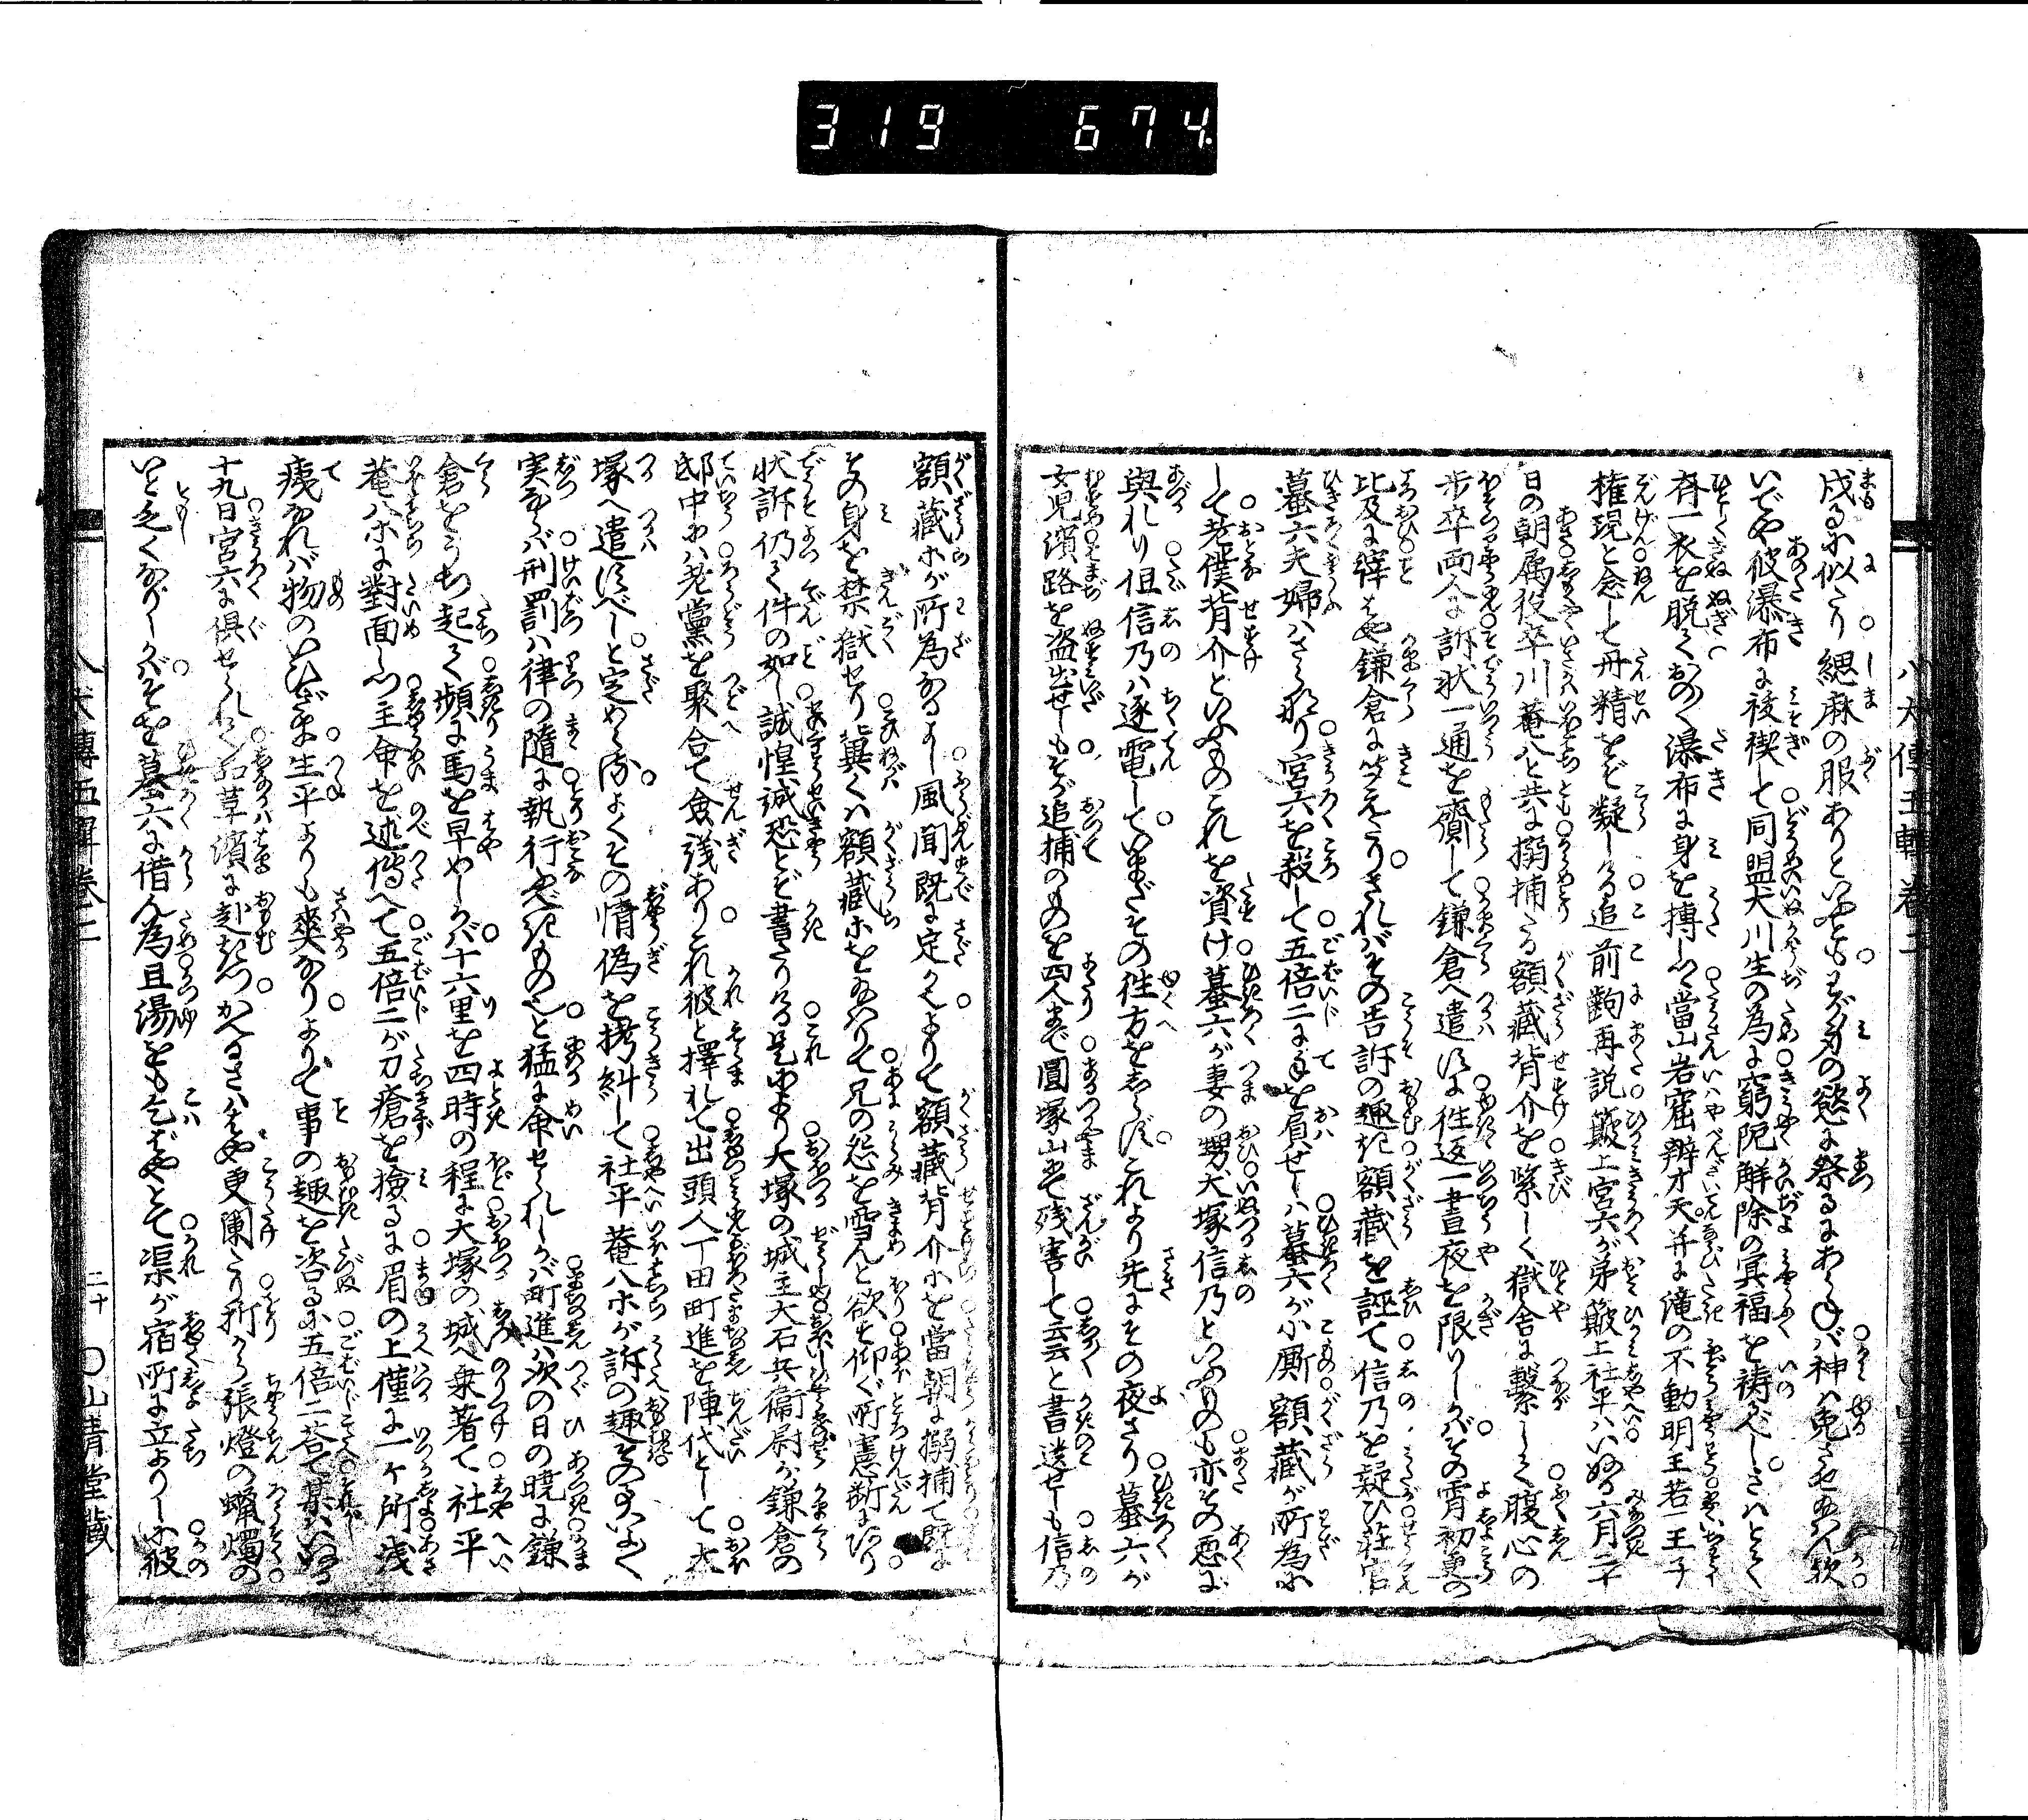 319 674
戌るに似たり緦麻の服ありといへどもわが身の慾に祭るにあらねば神は免させ給はん歟
いでや彼瀑布に祓禊して同盟犬川生の為に窮阨解除の冥福を祷るべしさはとて
斉一衣を脱ておの〳〵瀑布に身を搏しつゝ當山岩窟辨才天并に滝の不動明王若一王子
権現と念して丹精をぞ凝しける追前齣再説簸上宮六が弟簸上社平はいぬる六月二十
日の朝属役卒川菴八と共に搦捕たる額藏背介を緊しく獄舎に繋して腹心の
歩卒両人に訴状一通を齎して鎌倉へ遣すに往返一晝夜を限りしかばその宵初更の
比及に縡はや鎌倉に聞えたりさればその告訴の趣は額藏を誣て信乃を疑ひ荘官
蟇六夫婦はさら也宮六を殺して五倍二に手を負せしは蟇六が小厮額藏が所為に
して老僕背介といふものこれを資け蟇六が妻の甥大塚信乃といふものも亦その悪に
與れり但信乃は逐電していまだその往方をしらずこれより先にその夜さり蟇六が
女児濱路を盗出せしもそが追捕のものを四人まで圓塚山にて残害して云云と書遺せしも信乃
額藏等が所為なるよし風聞既に定かなりよりて額藏背介等を當朝に搦捕て既に
その身を禁獄せり冀くは額藏等を給はりて兄の怨を雪んと欲す仰ぐ所憲断にあり
状訴仍て件の如し誠惶誠恐とぞ書たりける是により大塚の城主大石兵衞尉が鎌倉の
邸中には老黨を聚合て僉議ありこれ彼と擇れて出頭人丁田町進を陣代として大
塚へ遣すべしと定めらるよくその情偽を拷糾して社平菴八等が訴の趣その事いよ〳〵
実ならば刑罰は律の随に執行ふべきもの也と猛に命せられしかば町進は次の日の暁に鎌
倉をうち起て頻に馬を早めしかば十六里を四時の程に大塚の城へ乗著て社平
菴八等に對面しつ主命を述傳へて五倍二が刀瘡を撿るに眉の上僅に一ヶ所浅
痍なれば物のいひざま生平よりも爽なりよりて事の趣を咨るに五倍二答て某はいぬる
十九日宮六に倶せられて品革濱に赴きつかへるさははや更闌たり折から張燈の蝋燭の
いと乏くなりしかばそを蟇六に借ん為且湯をも乞ばやとて渠が宿所に立よりしに彼
八犬傳五輯卷二
二十
山青堂藏